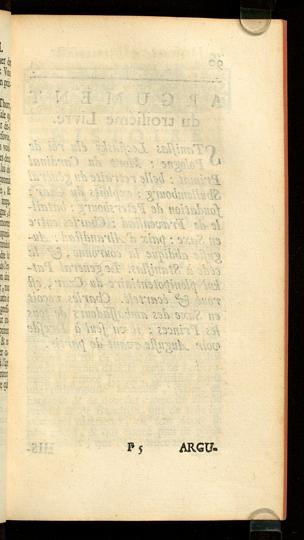 ARGUMENT
du troisiéme Livre.
STanislas Leczinsky élu roi de
Pologne : Mort du Cardinal
Primat : belle retraite du général
Shullembourg : exploits du Czar :
fondation de Petersbourg : batail-
le de Fravenstad : Charles entre
en Saxe : paix d'Altranstad : Au-
guste abdique la couronne, & la
cède à Stanislas. Le général Pat-
kul plénipotentiaire du Czar, est
roué & écartelé. Charles reçoit
en Saxe des ambassadeurs de tous
les Princes : il va seul à Dresde
voir Auguste avant de partir.
HIS-
P 5 ARGU-